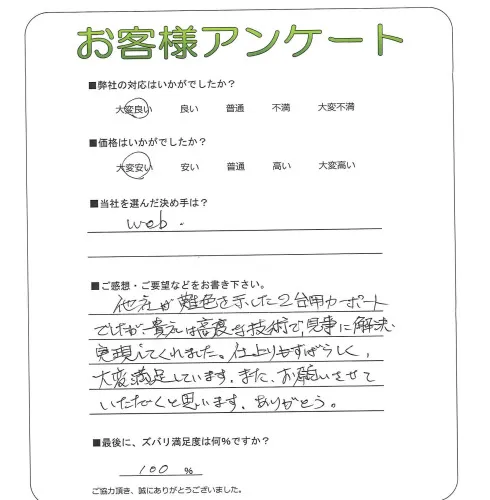 お客様アンケート
■弊社の対応はいかがでしたか？
大変良い 良い 普通 不満 大変不満
■価格はいかがでしたか？
大変安い 安い 普通 高い 大変高い
■当社を選んだ決め手は？
web.
■ご感想・ご要望などをお書き下さい。
他社が難色を示した2台用カーポート
でしたが貴社は高度な技術で、見事に解決、
実現してくれました。仕上りもすばらしく、
大変満足しています。また、お願いさせて
いただくと思います。ありがとう。
■最後に、ズバリ満足度は何％ですか？
100 %
ご協力頂き、誠にありがとうございました。